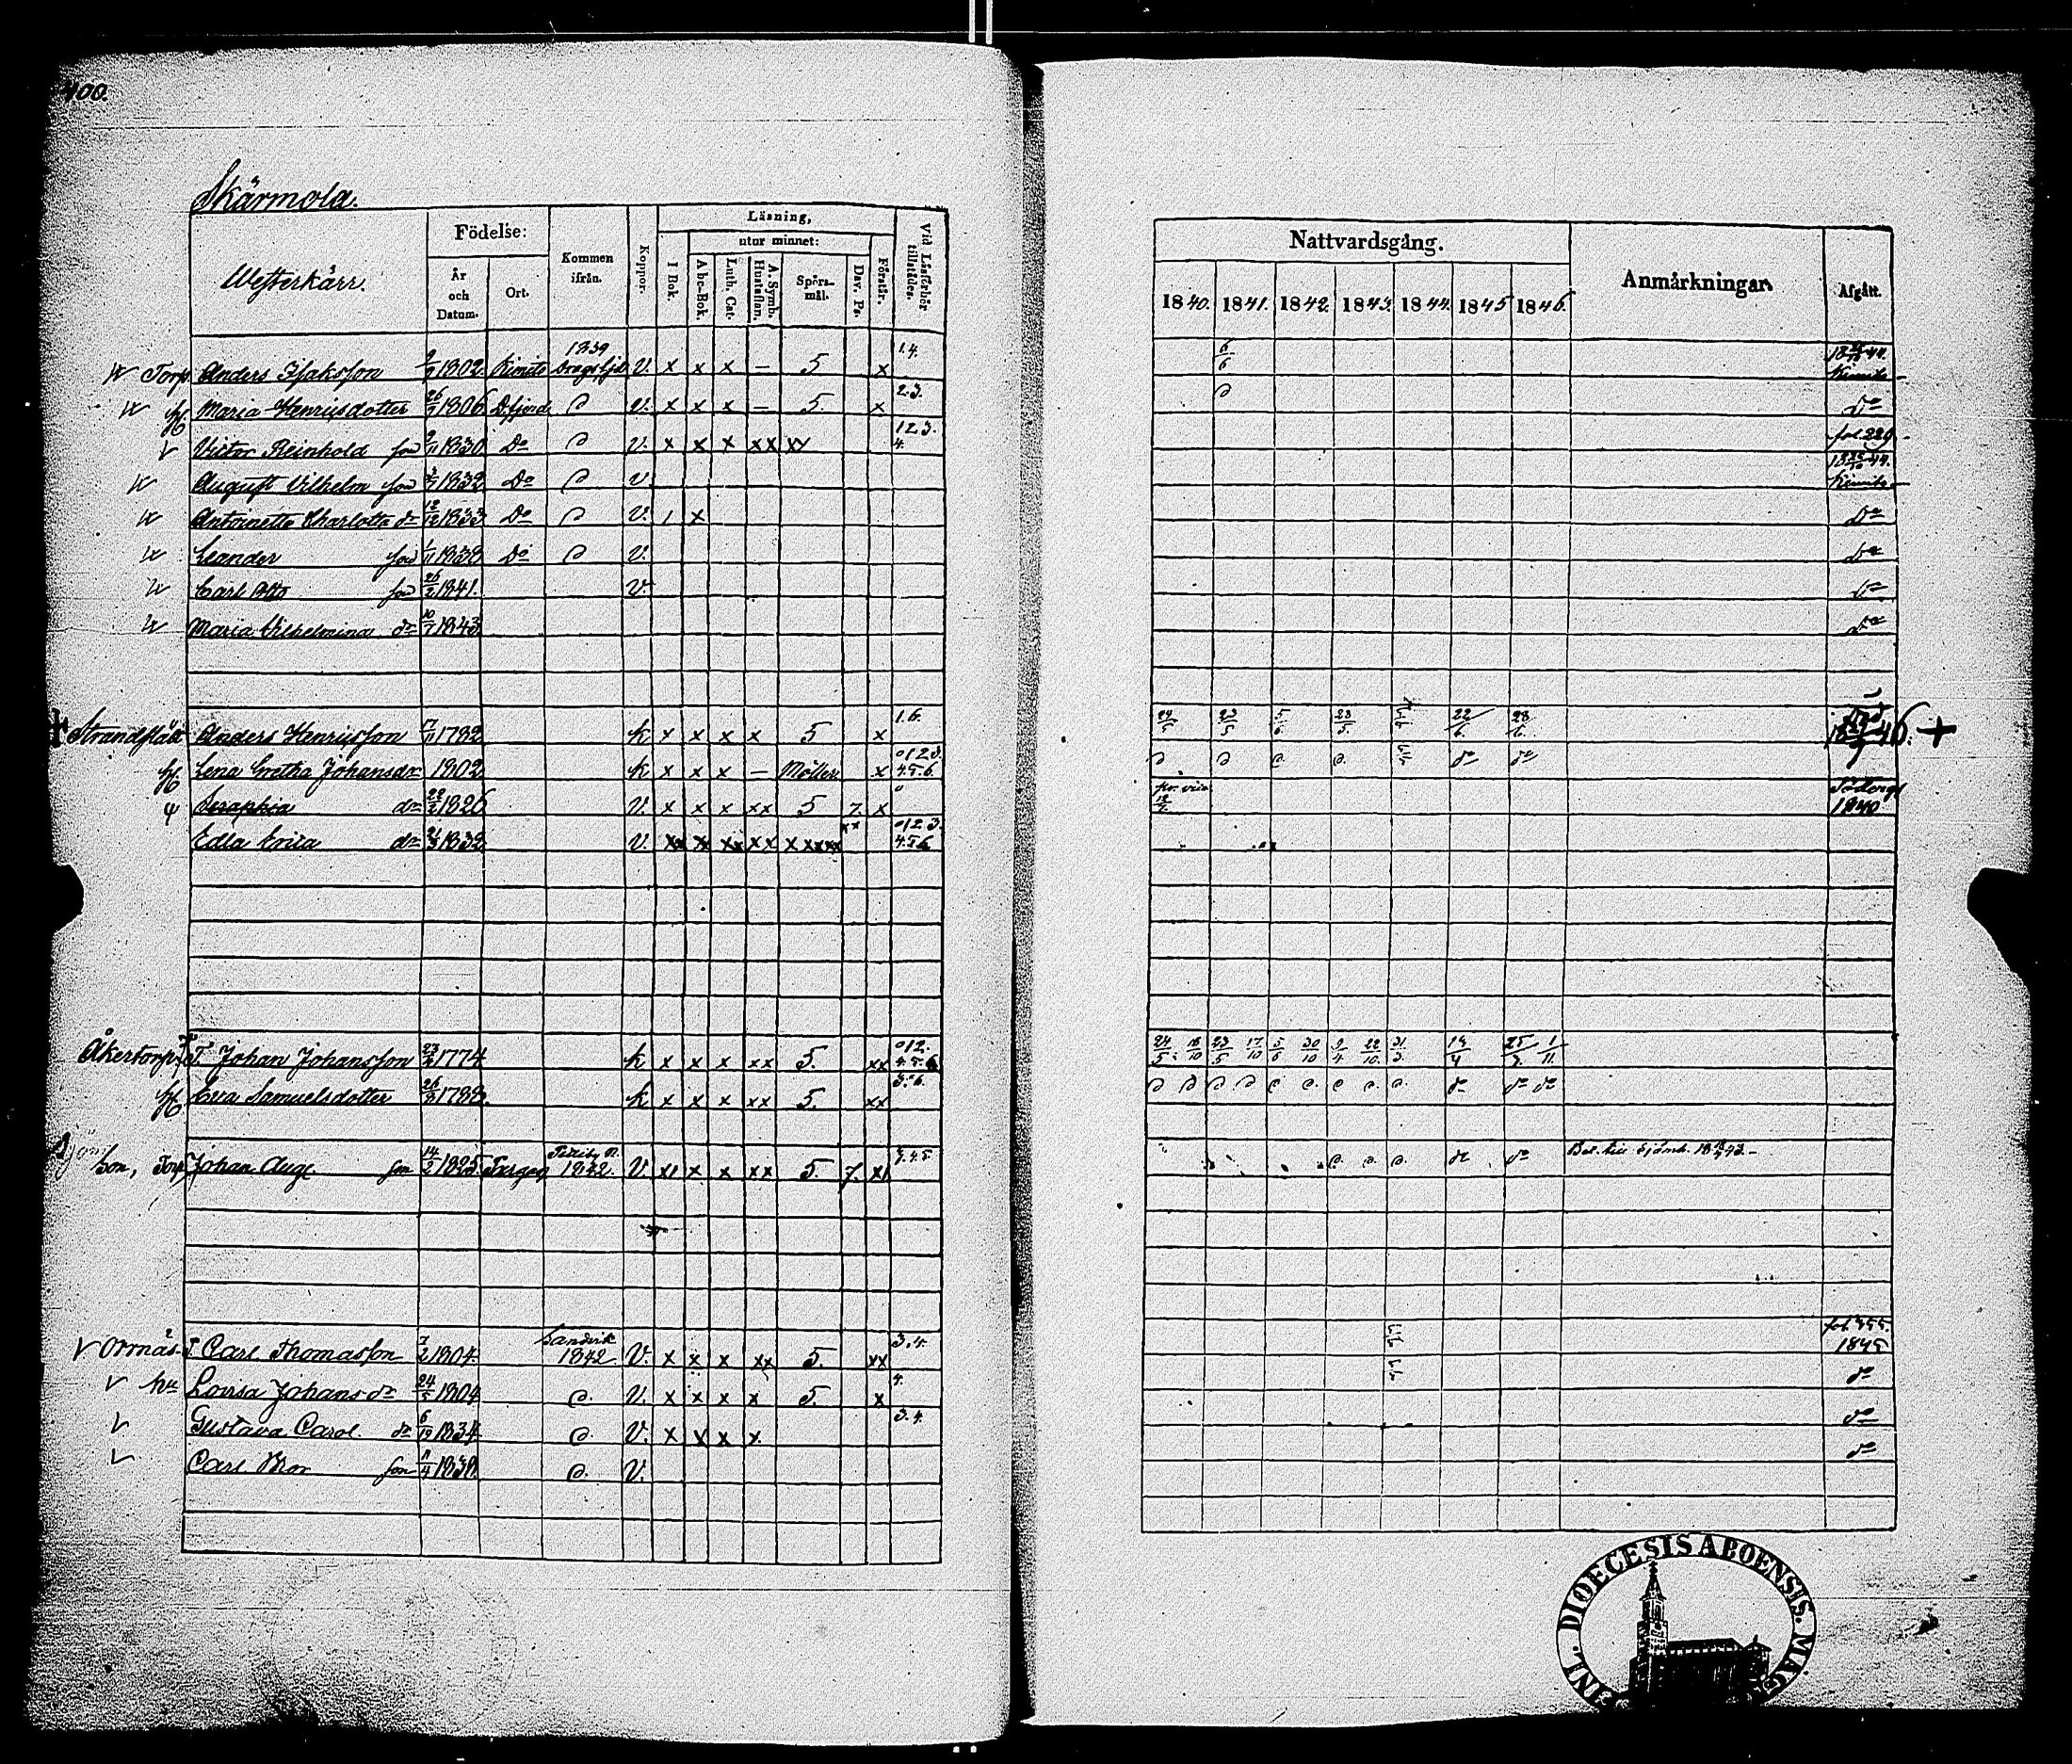 400.
Skärmola.
Westerkärr.
Födelse:
År och Datum.
Ort.
Kommen ifrån.
Koppor.
Läsning,
utur minnet:
I Bok.
Abc-Bok.
Luth. Cat.
A. Symb. Hustaflan.
Spörs-mål.
Dav. Ps.
Förstår.
Vid Läsförhör tillstädes.
Nattvardsgång.
1840. 1841. 1842. 1843. 1844. 1845 1846.
Anmärkningar.
Afgått.
Torp Anders Isaksson 1802 Kimito 1839 Dragsfjd V. x x x — 5 x 1.4. 6/6 Kimito
H. Maria Henricsdotter 26/ 1806 D.fjerd V. x x x — 5. x 2.3. do
Victor Reinhold son 9/11 1830 Do V. x x x xx xx 1 2 3. 4. fol. 229
August Vilhelm son 1832 Do V. Kimito
Antoinetta Charlotta dr 12/12 1833 Do V. 1 x Do
Leander son 1/11 1838 Do V. do
Carl Otto son 26/2 1841. V. do
Maria Vilhelmina dr 10/7 1843 do
Strandslätt Anders Henricsson 17/11 1792 k x x x x 5 x 1.6. 24/5 23/5 5/6 28/5 22/6 28/6 Död 46. +
H. Lena Gretha Johansdr 1802 k x x x — Möller x 0 1 2 3. 4.5.6. do do
Seraphia dr 22/2 1826 V. x x x xx 5 7. x 1840
Edla Erica dr 21/5 1832 V. xx xx xx xx xxxxx xx 0 1 2 3. 4 5 6
Åkertorp T. Johan Johansson 23/ 1774 k x x x xx 5. xx 0 1 2. 4.5.6 24/5 18/10 23/5 17/10 5/6 30/10 9/4 22/10 31/3 14/4 25/3 1/11
H. Eva Samuelsdotter 26/3 1788. k x x x xx 5. xx 3.6. do do do
Son, Torp Johan Auge son 14/2 1825 1842. V. x1 x x xx 5. 7. x1 3.4.5 do do
V Ormnäs T. Carl Thomasson 7/2 1804. Sandvik 1842 V. x x x xx 5. xx 3.4. fol. 355. 1845
V hu Lovisa Johansdr 24/5 1804 V. x x x x 5. x 4. do
V Gustava Carol. dr 6/12 1834 V. x x x x 3.4. do
V Carl Thor son 11/4 1838 V. do
DIOECESIS ABOENSIS.